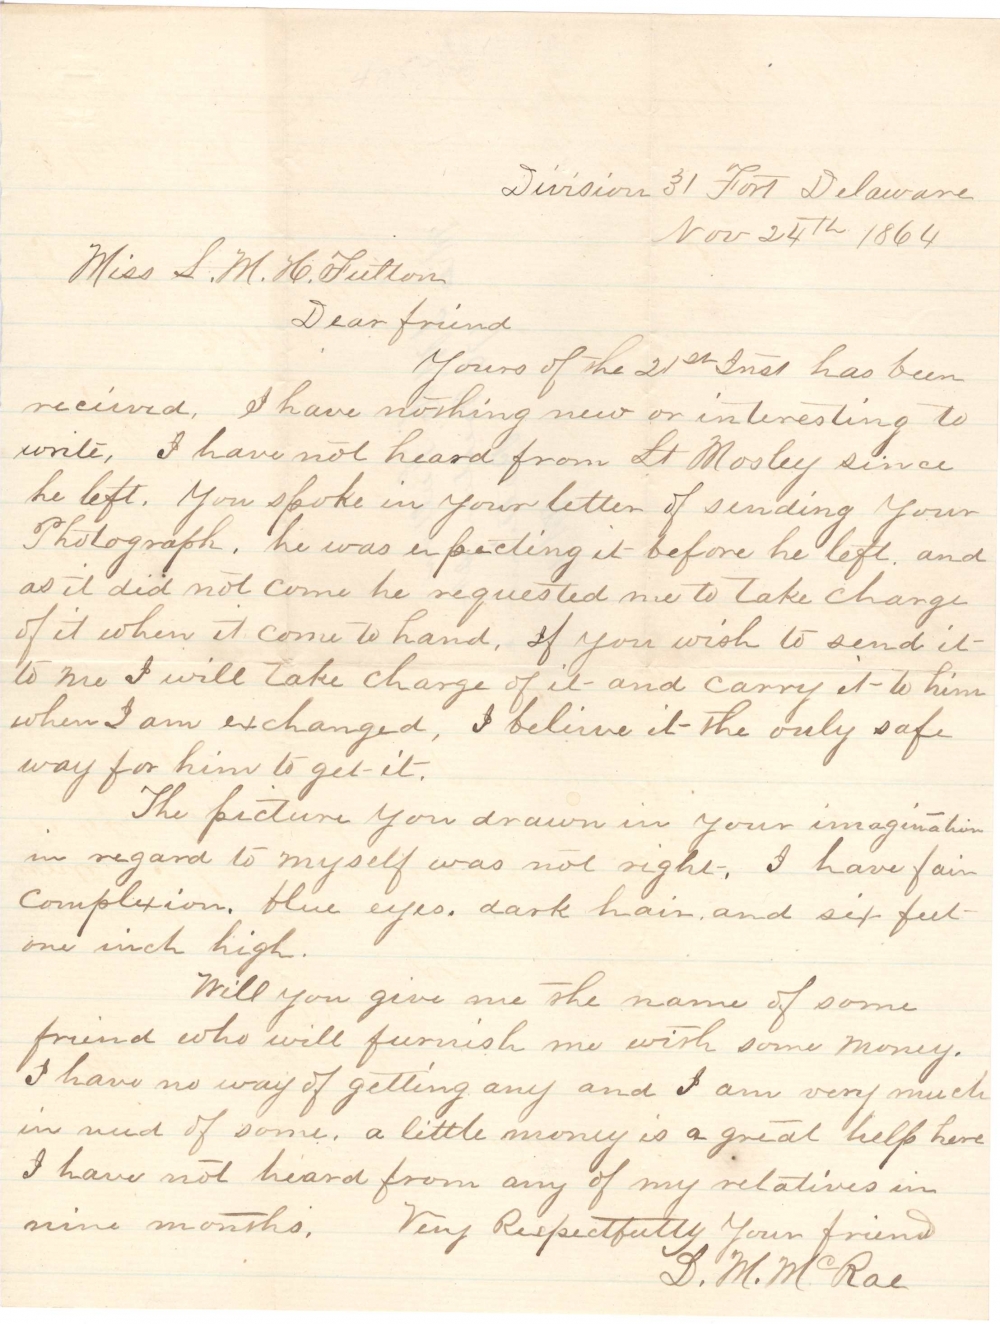 Division 31 Fort Delaware
Nov 24th 1864
Miss S. M. H. Fulton
Dear friend
Yours of the 21st Inst has been
recieved, I have nothing new or interesting to
write, I have not heard from Lt Mosley since
he left. You spoke in your letter of sending your
Photograph. he was expecting it before he left. and
as it did not come he requested me to take charge
of it when it come to hand, if you wish to send it
to me I will take charge of it and carry it to him
when I am exchanged, I believe it the only safe
way for him to get it.
The picture you drawn in your imagination
in regard to myself was not right, I have fair
complexion. blue eyes. dark hair. and six feet
one inch high.
Will you give me the name of some
friend who will furnish me with some money.
I have no way of getting any and I am very much
in need of some. a little money is a great help here
I have not heard from any of my relatives in
nine months. Very Respectfully Your friend
D. M. McRae